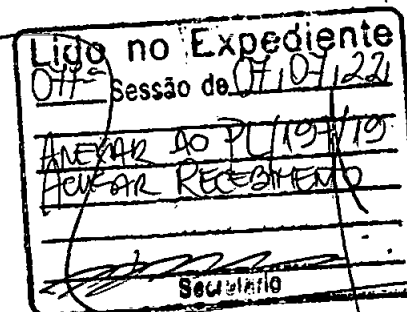 Lido no Expediente
Sessão de 07,07,22
ANEXAR AO PL/197/19
ACUSAR RECEBIMENTO
Secretário